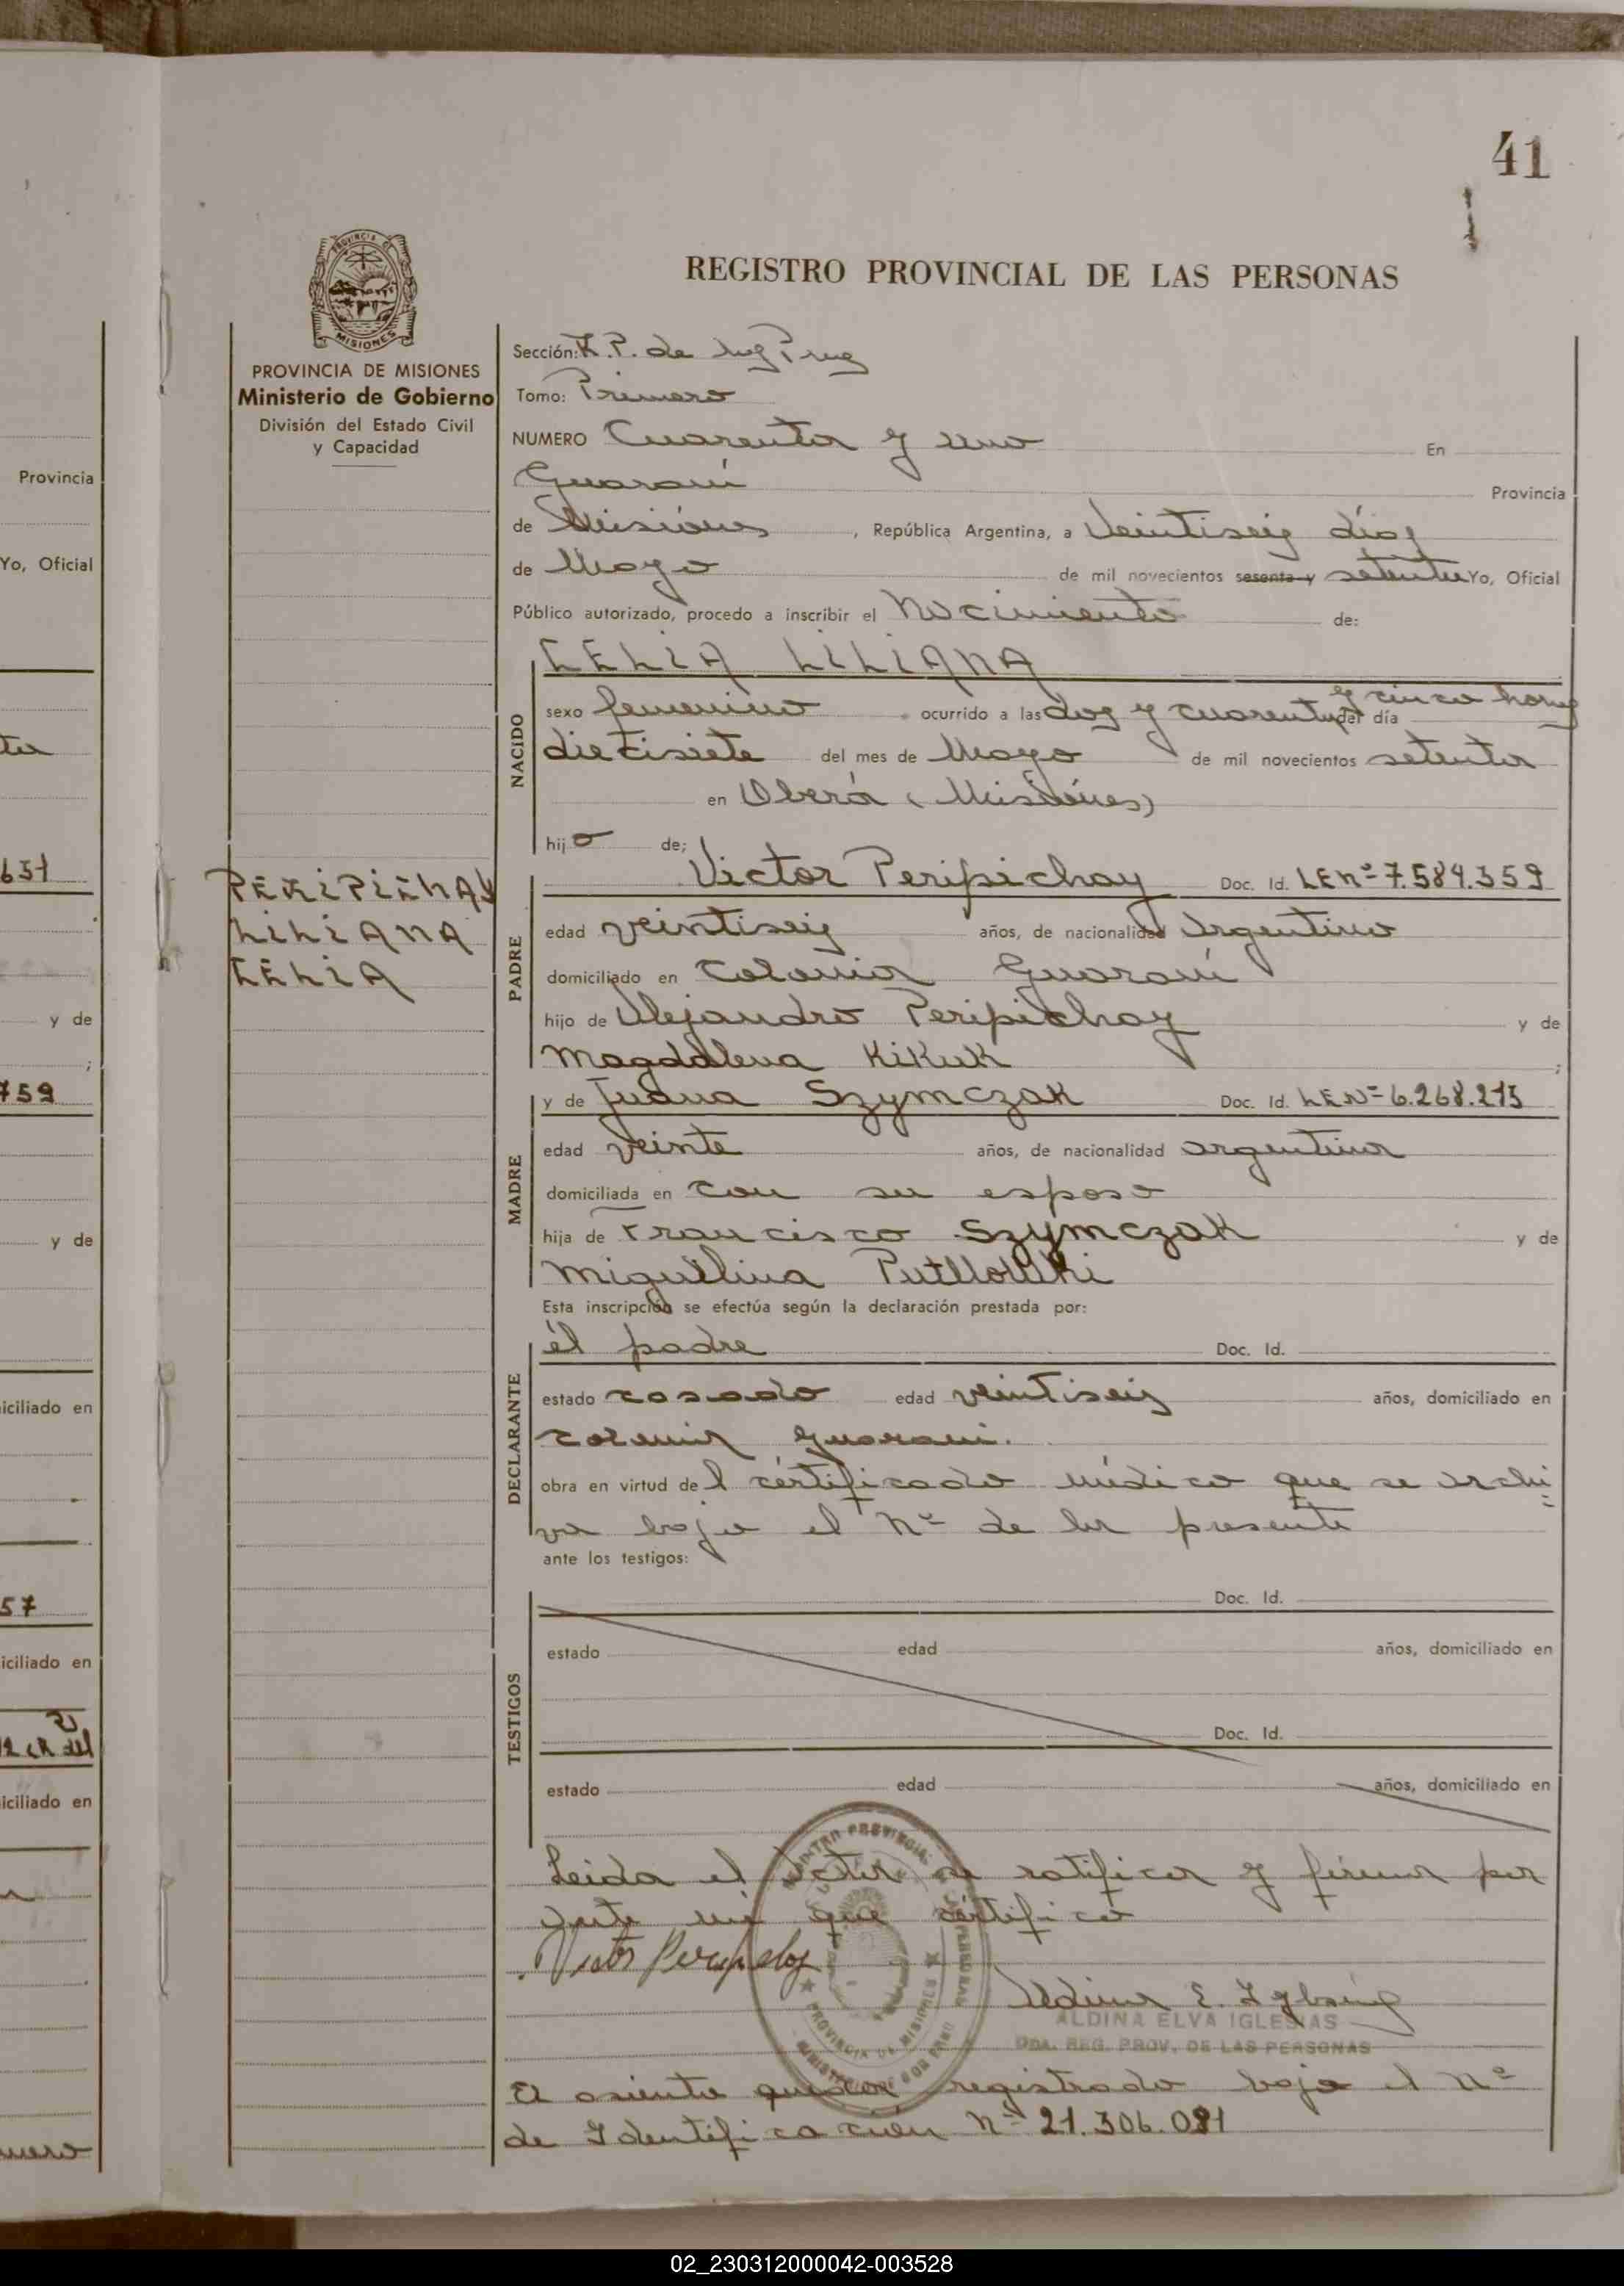 41
REGISTRO PROVINCIAL DE LAS PERSONAS
PROVINCIA DE MISIONES
Ministerio de Gobierno
División del Estado Civil
y Capacidad
Sección: de
Tomo: Primero
NUMERO Cuarenta y uno En
Guaraní Provincia
de Misiones, República Argentina, a Veintiseis días
de Mayo de mil novecientos sesenta y setenta Yo, Oficial
Público autorizado, procedo a inscribir el Nacimiento de:
CELIA LILIANA
NACIDO
sexo femenino ocurrido a las dos y cuarenta y cinco horas del día
diecisiete del mes de Mayo de mil novecientos setenta
en Oberá (Misiones)
hija de;
PERIPICHAY
LILIANA
CELIA
PADRE
Victor Peripichay Doc. Id. LE Nº 7.584.359
edad veintiseis años, de nacionalidad Argentino
domiciliado en Colonia Guaraní
hijo de Alejandro Peripichay y de
Magdalena Kikuk;
MADRE
y de Juana Szymczak Doc. Id. LE Nº 6.268.215
edad veinte años, de nacionalidad argentina
domiciliada en con su esposo
hija de Francisco Szymczak y de
Miguelina
Esta inscripción se efectúa según la declaración prestada por:
DECLARANTE
él padre Doc. Id.
estado casado edad veintiseis años, domiciliado en
colonia guarani.
obra en virtud del certificado médico que se archi
va bajo el Nº de la presente
ante los testigos:
TESTIGOS
Doc. Id.
estado edad años, domiciliado en
Doc. Id.
estado edad años, domiciliado en
Leida el acta se ratifica y firma por
ante mi que certifico
Aldina E. Iglesias
ALDINA ELVA IGLESIAS
REG. PROV. DE LAS PERSONAS
El asiento queda registrado bajo el Nº
de Identificación Nº 21.306.091
Provincia
Yo, Oficial
y de
759
y de
iciliado en
57
iciliado en
iciliado en
02_230312000042-003528